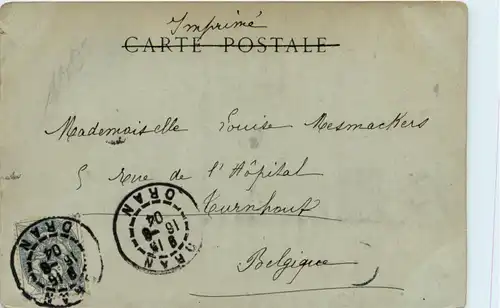 Imprimé
CARTE POSTALE
Mademoiselle Louise Mesmackers
5 Rue de l'Hôpital
Turnhout
Belgique
ORAN
ORAN
16
04
ORAN
ORAN
04